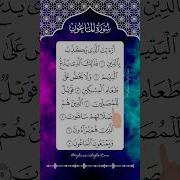 سُورَةُ الْمَاعُون
أَرَءَيْتَ الَّذِي يُكَذِّبُ
بِالدِّينِ ۝ فَذَٰلِكَ الَّذِي يَدُعُّ
الْيَتِيمَ ۝ وَلَا يَحُضُّ عَلَىٰ
طَعَامِ الْمِسْكِينِ ۝ فَوَيْلٌ
لِّلْمُصَلِّينَ ۝ الَّذِينَ هُمْ عَن
صَلَاتِهِمْ سَاهُونَ ۝
الَّذِينَ هُمْ يُرَاءُونَ ۝
وَيَمْنَعُونَ الْمَاعُونَ ۝